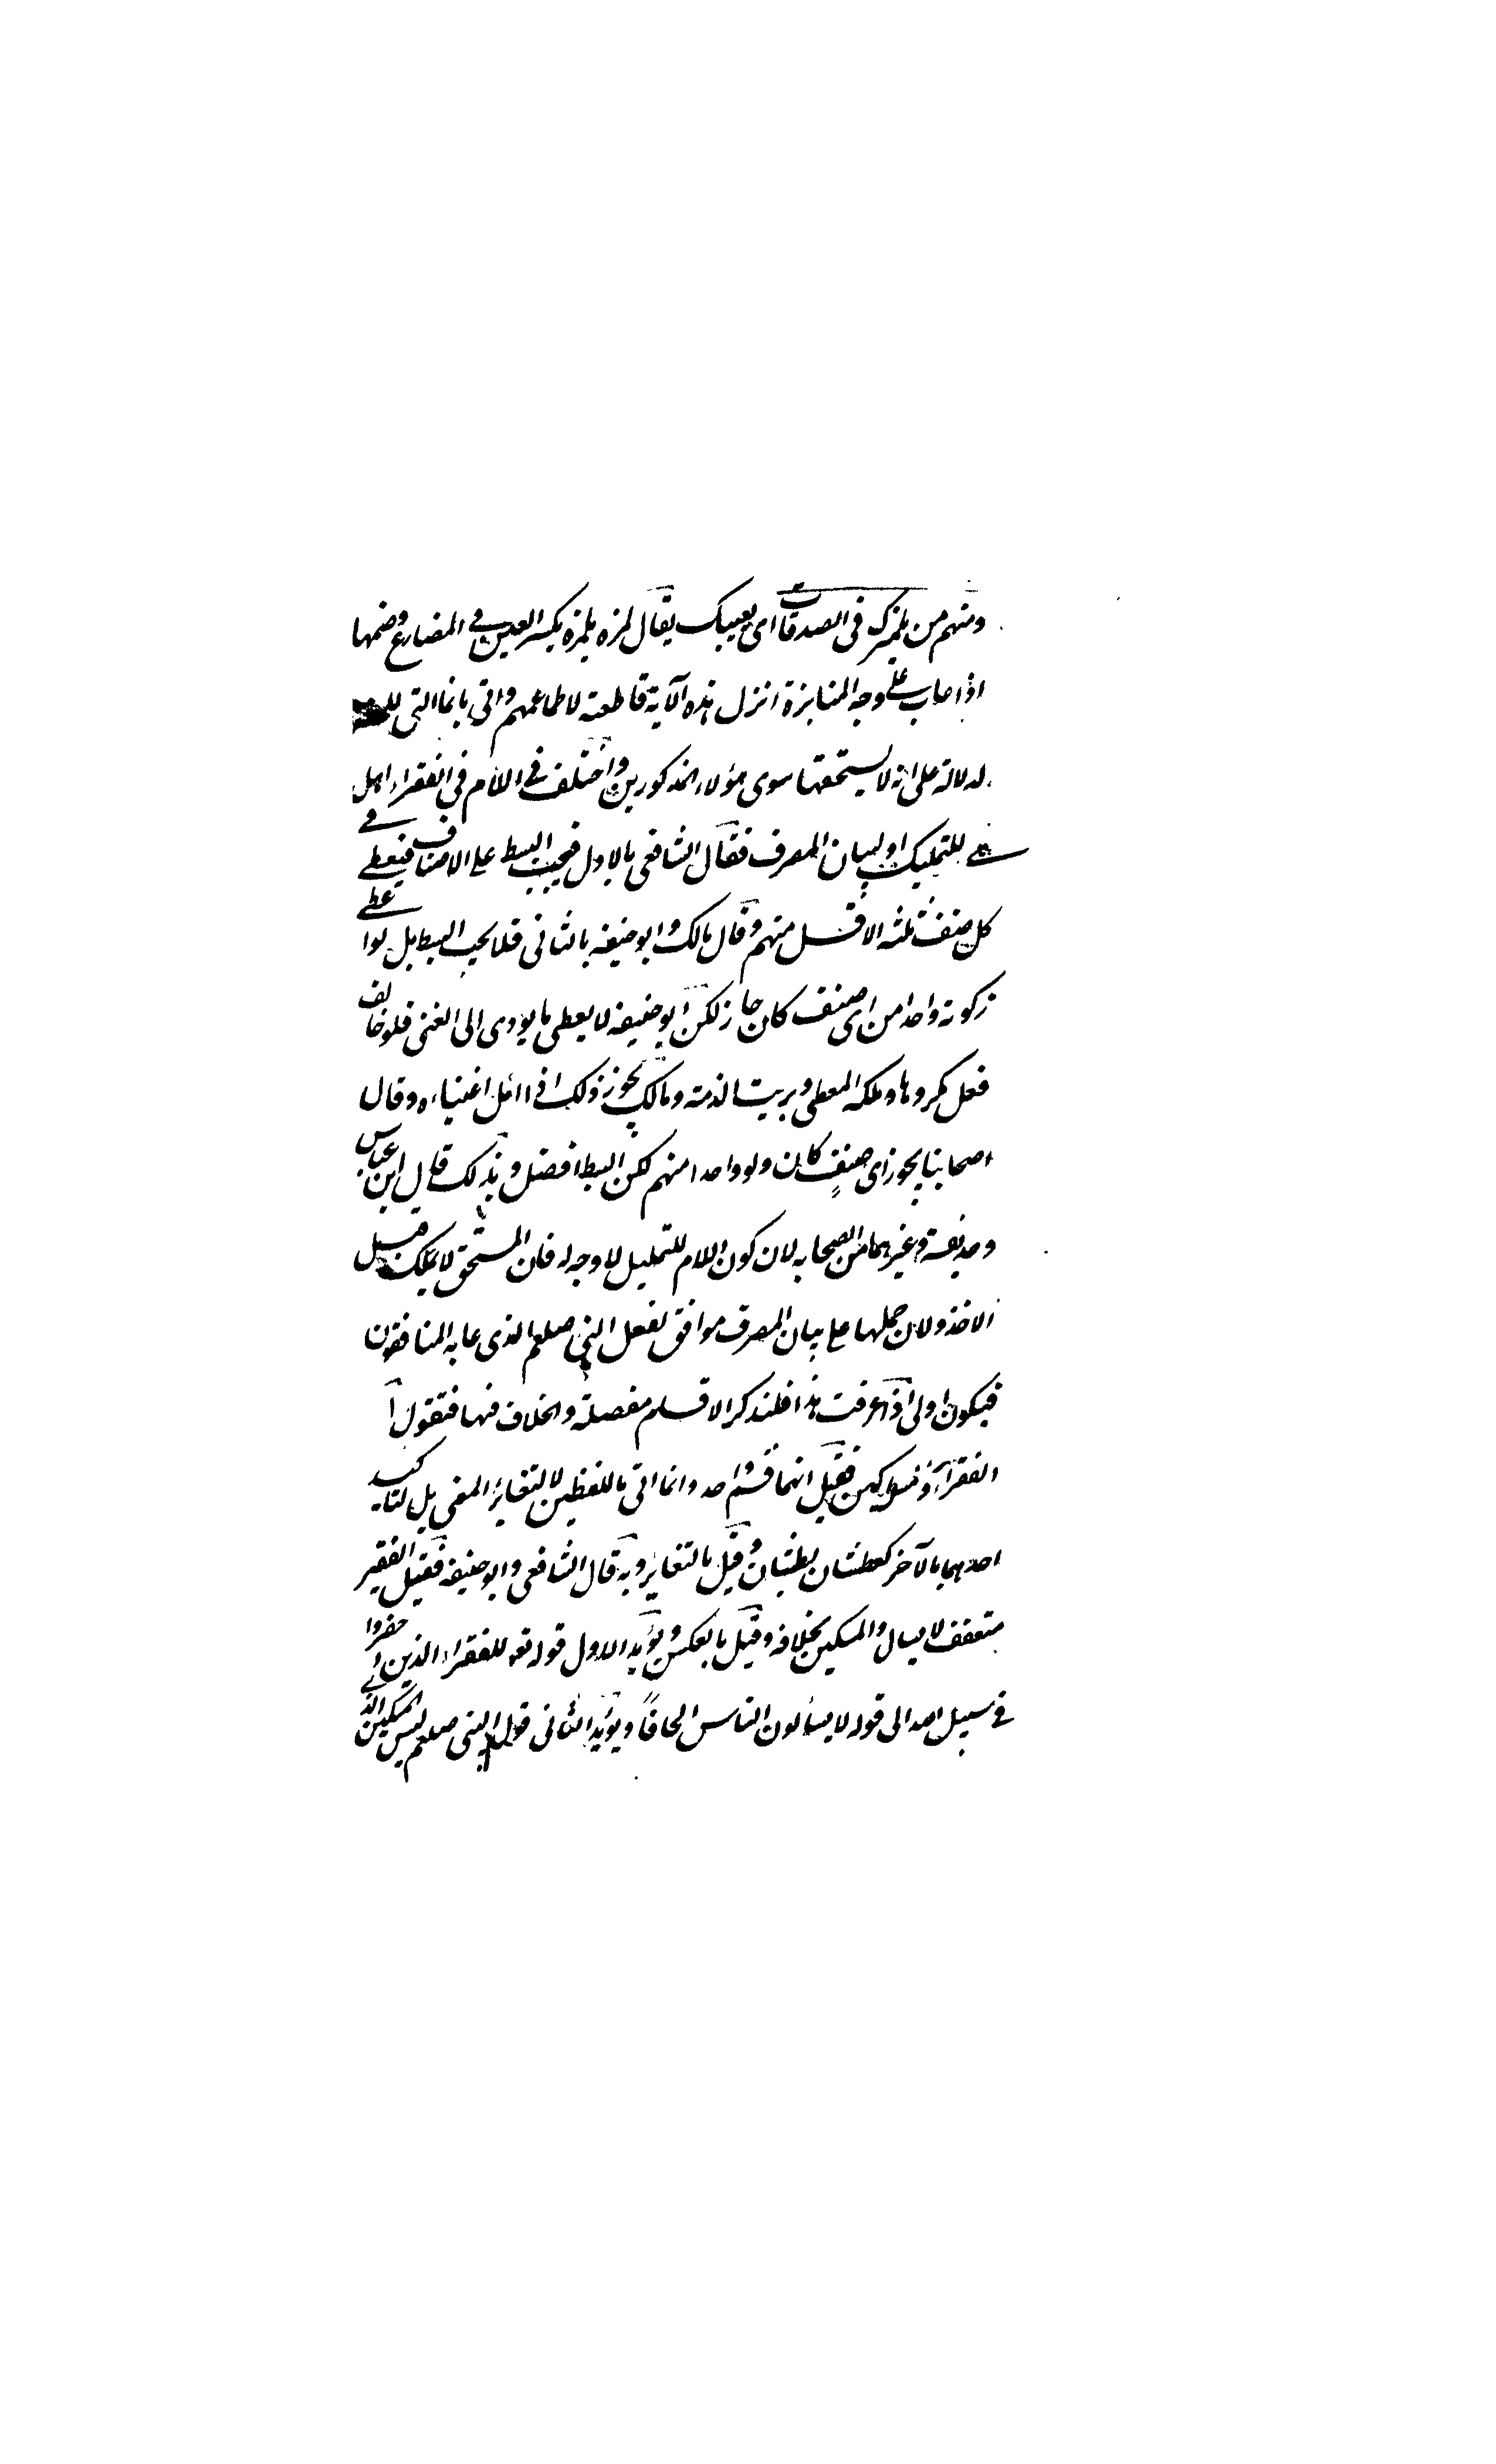 ومنهم من يلمزك فى الصدقات اى يعيبك يقال لمزه يلمزه بكسر العين فى المضارع وضمها
اذا عاب على وجه المنابزة انزل هذه الآية قاطعة لاطماعهم واتى بانما التى للحصر
لدلالة على انه لا يستحقها سوى هؤلاء المذكورين واختلف فى اللام فى الفقراء اهل
هى للتمليك او لبيان المصرف فقال الشافعى بالاول فيجب البسط على الاصناف فيعطى فى
كل صنف ثلثه الاقل منهم وقال مالك وابو حنيفه بالثانى فلا يجب البسط بل لو اعطى
زكوته واحدا من اى صنف كان جاز لكن ابو حنيفه لا يعطى ما يؤدى الى الغنى فلو خالف
فعل مكروها وملكه المعطى وبريت الذمة ومالك يجوز ذلك اذا امل اغنياءه وقال
اصحابنا يجوز اى صنفٍ كان ولو واحدا منهم لكن البسط افضل وبذلك قال ابن عباس
وحذيفة وغيرهما من الصحابه لان كون اللام للتمليك لا وجه له فان المستحق لا يملك قبل
الاخذ ولان حملها على بيان المصرف موافق لفعل النبى صلعم الذى عابه المنافقون
فيكون اولى اذا عرفت هذا فلنذكر الاقسام مفصلة والخلاف فيها فنقول آ
الفقرآء والمساكين فقيل انهما قسم واحد وانما اتى باللفظين لا لتغاير المعنى بل لتاكيد
احدهما بالآخر كعطشان نطشان وقيل بالتغاير وبه قال الشافعى وابو حنيفه فقيل الفقير
متعفف لا يسال والمسكين بخلافه وقيل بالعكس ويؤيد الاول قوله تعه للفقراء الذين احصروا
فى سبيل الله الى قوله لا يسألون الناس الحافاً ويؤيد الثانى قول النبى صلعم ليس المسكين الذى